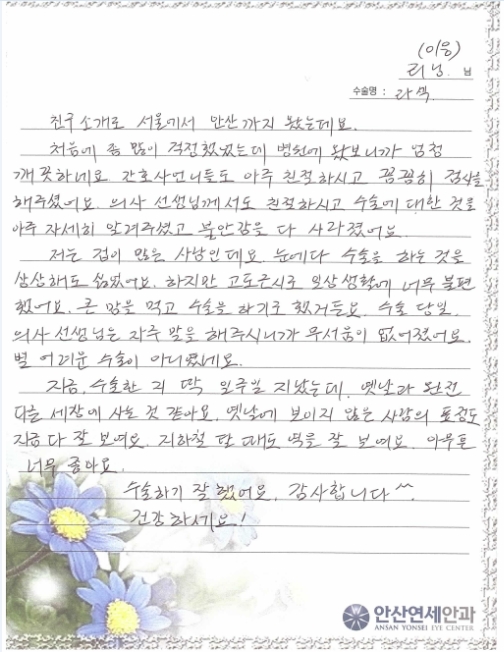 (이용)
리닝. 님
수술명 : 라섹.
친구 소개로 서울에서 안산까지 왔는데요.
처음에 좀 많이 걱정했었는데 병원에 왔보니까 엄청
깨끗하네요. 간호사언니들도 아주 친절하시고 꼼꼼히 검사를
해주셨어요. 의사 선생님께서도 친절하시고 수술에 대한 것을
아주 자세히 알려주셨고 불안감을 다 사라졌어요.
저는 겁이 많은 사람인데요. 눈에다 수술을 하는 것을
상상해도 싫었어요. 하지만 고도근시로 일상생활에 너무 불편
했어요. 큰 맘을 먹고 수술을 하기로 했거든요. 수술 당일,
의사 선생님은 자주 말을 해주시니까 무서움이 없어졌어요.
별 어려운 수술이 아니였네요.
지금, 수술한 지 딱 일주일 지났는데, 옛날과 완전
다른 세상에 사는 것 같아요. 옛날에 보이지 않는 사람의 표정도
지금 다 잘 보여요. 지하철 탈 때도 역을 잘 보여요. 아무튼
너무 좋아요.
수술하기 잘 했어요. 감사합니다^^.
건강하세요!
안산연세안과
ANSAN YONSEI EYE CENTER